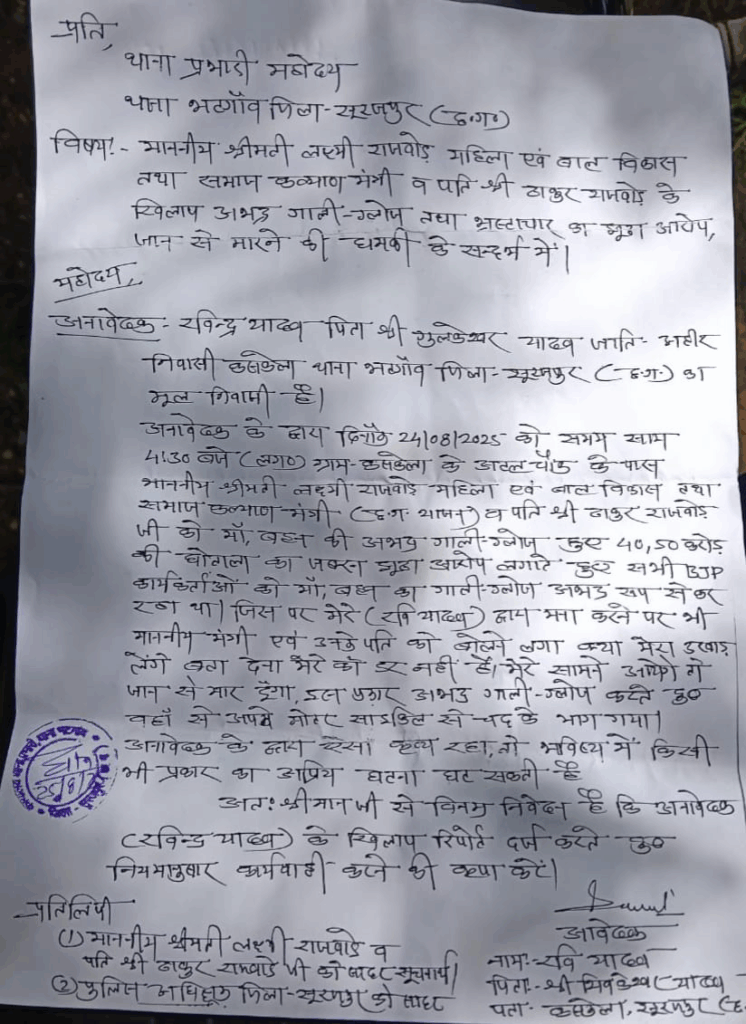 प्रति,
थाना प्रभारी महोदय
थाना भटगाँव जिला-सूरजपुर (छ.ग.)
विषय:- माननीय श्रीमती लक्ष्मी राजवाड़े महिला एवं बाल विकास
तथा समाज कल्याण मंत्री व पति श्री ठाकुर राजवाड़े के
खिलाप अभद्र गाली-ग्लोप तथा भ्रस्टाचार का झूठा आरोप,
जान से मारने की धमकी के सन्दर्भ में।
महोदय,
अनावेदक- रविन्द्र यादव पिता श्री यादव जाति- अहीर
निवासी कसकेला थाना भटगाँव जिला-सूरजपुर (छ.ग.) का
मूल निवासी है।
अनावेदक के द्वारा दिनाँक 24/08/2025 को समय शाम
4:30 बजे (लग०) ग्राम-कसकेला के अटल चौक के पास
माननीय श्रीमती लक्ष्मी राजवाड़े महिला एवं बाल विकास तथा
समाज कल्याण मंत्री (छ.ग. शासन) व पति श्री ठाकुर राजवाड़े
जी को माँ, बहन की अभद्र गाली-ग्लोप हुए 40,50 करोड़
की घोटाला का झूठा आरोप लगाते हुए सभी BJP
कार्यकर्ताओं को माँ, बहन का गाली-ग्लोज अभद्र रूप से कर
रहा था। जिस पर मेरे (रवि यादव) द्वारा मना करने पर भी
माननीय मंत्री एवं उनके पति को बोलने लगा क्या मेरा उखाड़
लेंगे बता देना मेरे को डर नहीं है, मेरे सामने आयेंगे तो
जान से मार दूँगा, इस प्रकार अभद्र गाली-ग्लोप करते हुए
वहाँ से अपने मोटर साइकिल से चढ़ के भाग गया।
अनावेदक के द्वारा ऐसा कृत्य रहा, तो भविष्य में किसी
भी प्रकार का अप्रिय घटना घट सकती है
अतः श्रीमान जी से विनम्र निवेदन है कि अनावेदक
(रविन्द्र यादव) के खिलाप रिपोर्ट दर्ज करते हुए
नियमानुसार कार्यवाही करने की कृपा करें।
प्रतिलिपी
(1) माननीय श्रीमती लक्ष्मी राजवाड़े व
पति श्री ठाकुर राजवाड़े जी को सादर सूचनार्थ।
(2) पुलिस अधिक्षक जिला-सूरजपुर को सादर
आवेदक
नाम:- रवि यादव
पिता:- श्री यादव
पता:- कसकेला, सूरजपुर (छ.